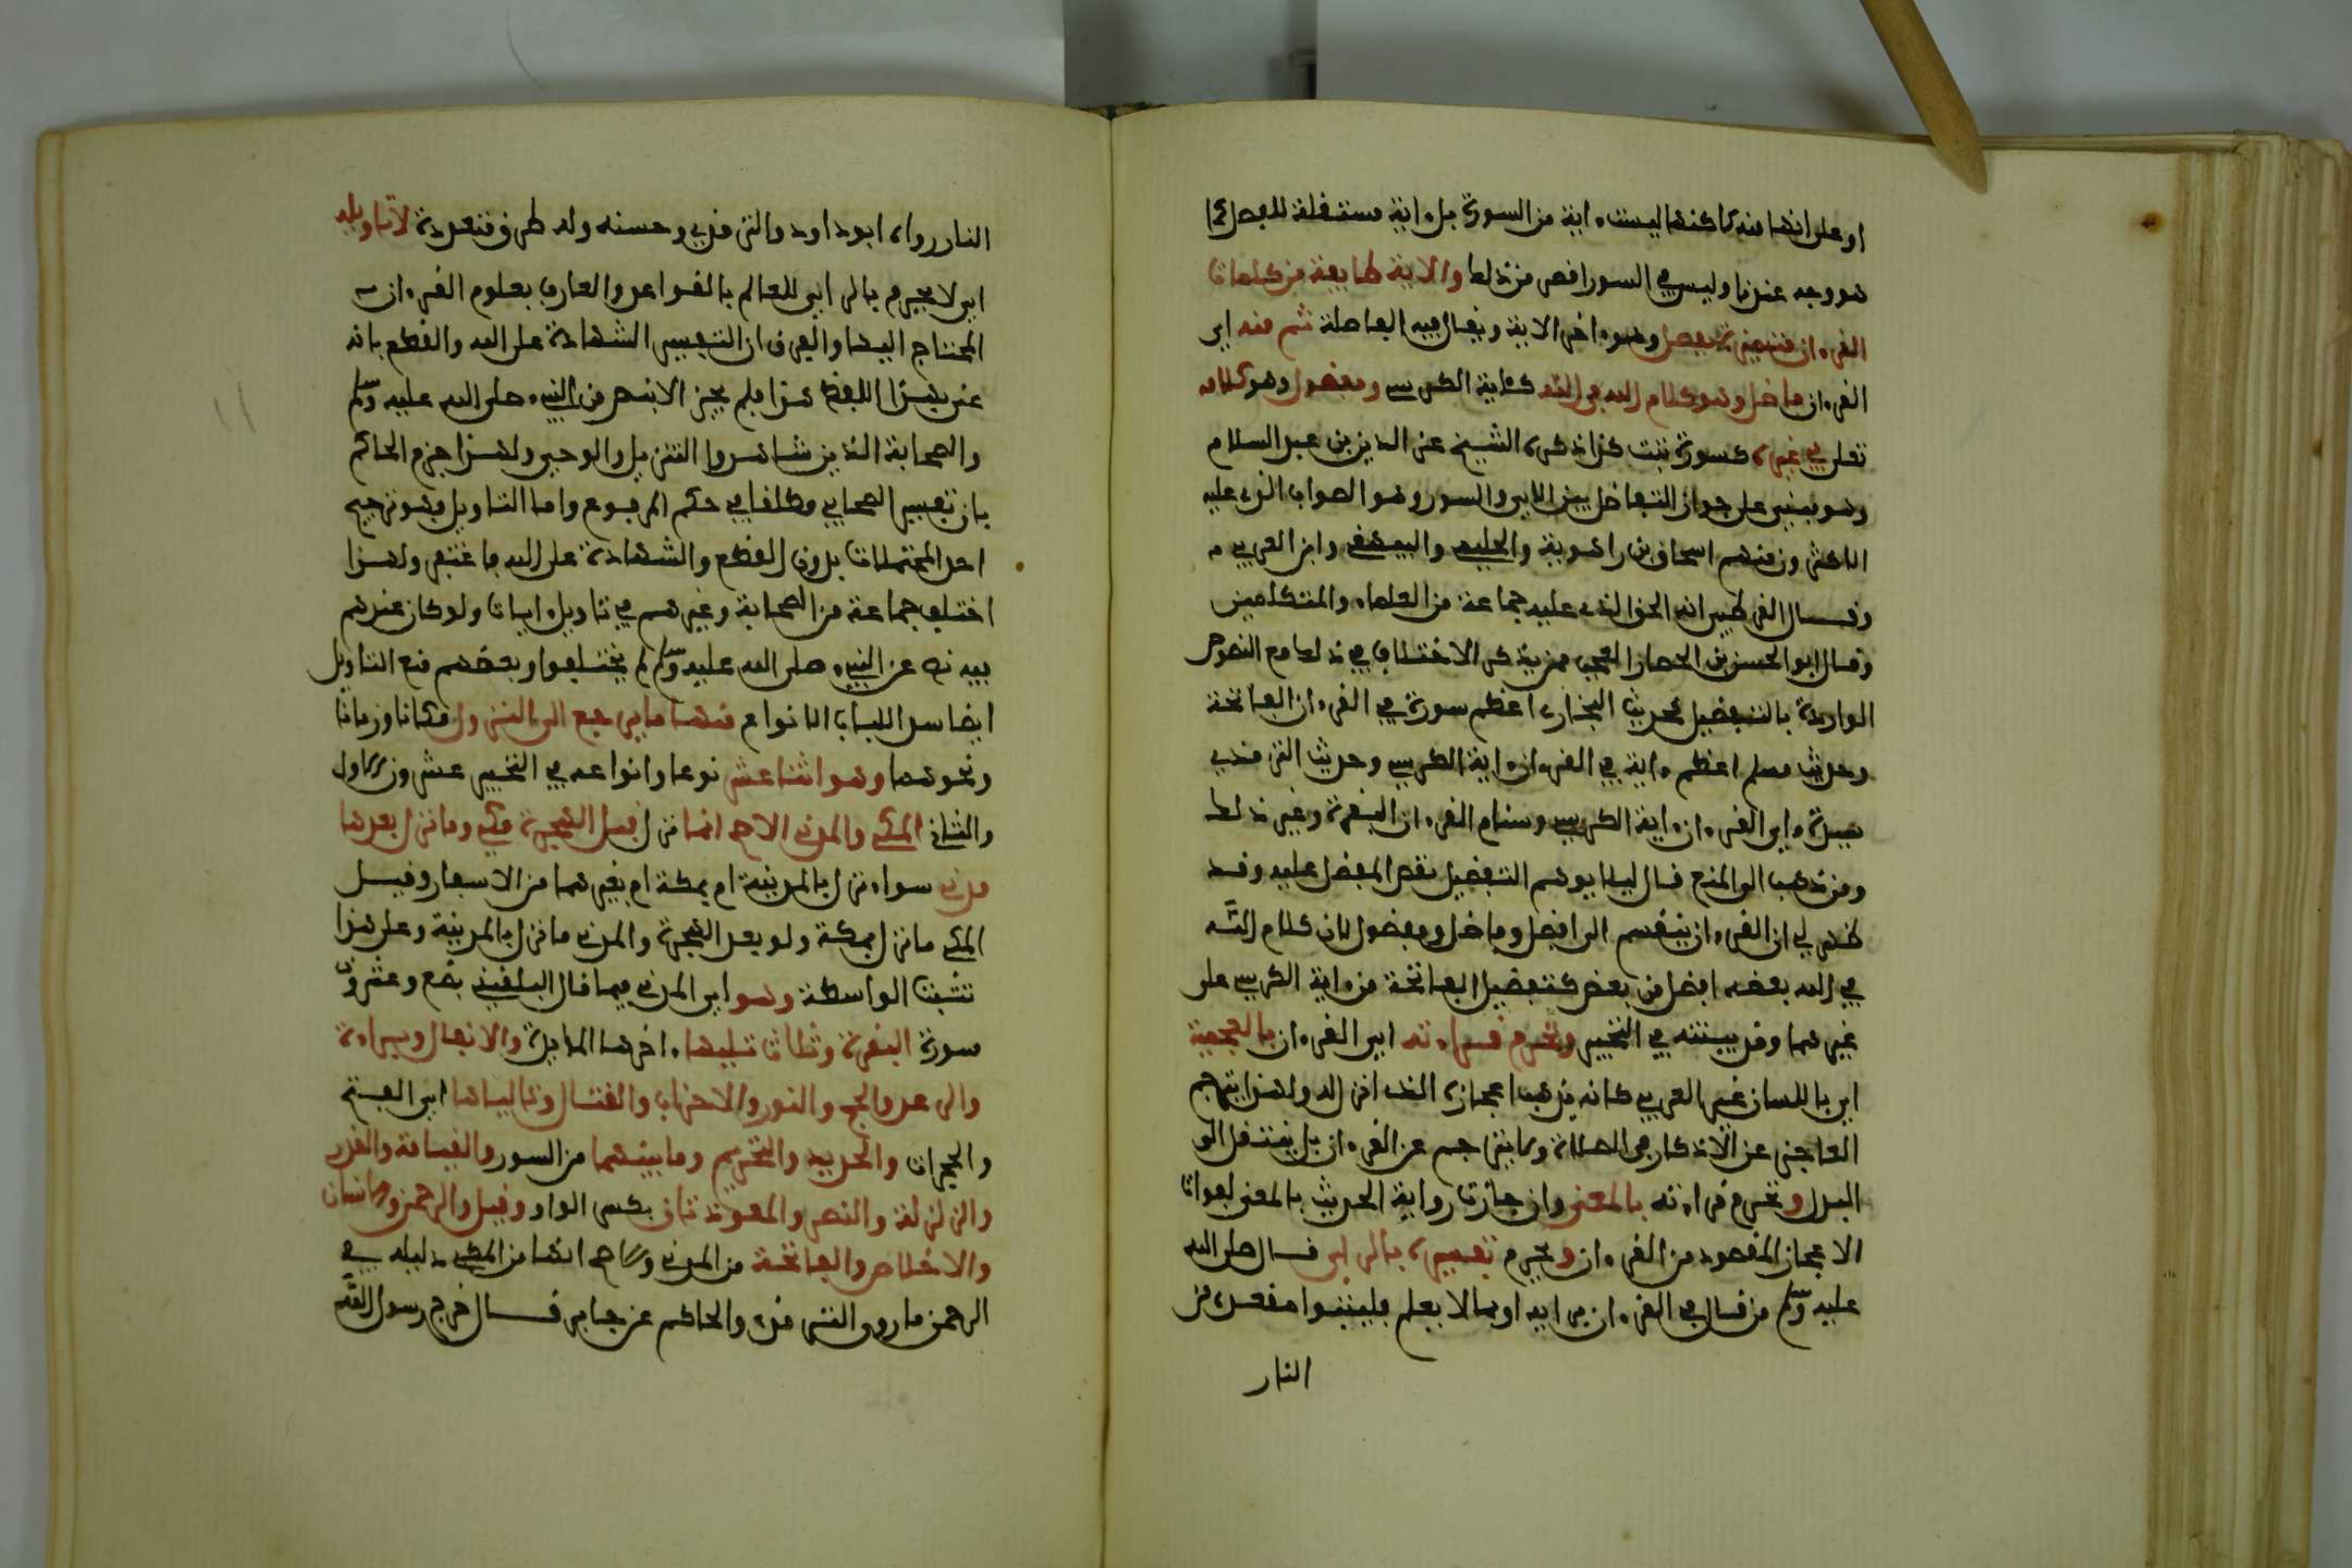 او على انها منه لاكنها ليست ءاية من السورة بل ءاية مستقلة للفصل كما
هو وجه عندنا وليس في السور اقصر من ذلك والاية طايفة من كلمات
القرءان متميزة بفصل وهو ءاخر الاية ويقال فيه الفاصلة ثم منه اي
القرءان فاضل وهو كلام الله في الله كئاية الكرسي ومفضول وهو كلامه
تعلى في غيره كسورة تبت كذا ذكره الشيخ عز الدين بن عبد السلام
وهو مبني على جواز التفاضل بين الاي والسور وهو الصواب الذي عليه
الاكثرون منهم اسحاق بن راهوية والحليمي والبيهقي وابن العربي
وقال القرطبي انه الحق الذي عليه جماعة من العلماء والمتكلمين
وقال ابو الحسن بن الحصار العجب ممن يذكر الاختلاف في ذلك مع النصوص
الواردة بالتفضيل كحديث البخاري اعظم سورة في القرءان الفاتحة
وحديث مسلم اعظم ءاية في القرءان ءاية الكرسي وحديث الترمذي
سيدة ءاي القرءان ءاية الكرسي وسنام القرءان البقرة وغير ذلك
ومن ذهب الى المنع قال ليلا يوهم التفضيل نقص المفضل عليه وقد
ظهر لي ان القرءان ينقسم الى افضل وفاضل ومفضول لان كلام الله
في الله بعضه افضل من بعض كتفضيل الفاتحة من ءاية الكرسي على
غيرهما وقد بينته في التحبير وتحرم قراءته اي القرءان بالعجمية
اي باللسان غير العربي كانه يذهب اعجازه الذي انزل له ولهذا يترجم
العاجز عن الاذكار في الصلاة ولا يترجم عن القرءان بل ينتقل الى
البدل وتحرم قراءته بالمعنى وان جازت رواية الحديث بالمعنى لفوات
الاعجاز المقصود من القرءان ويحرم تفسيره بالراي قال صلى الله
عليه وسلم من قال في القرءان برايه او بما لا يعلم فليتبوا مقعده من
النار
النار رواه ابو داود والترمذي وحسنه وله طرق متعددة لا تاويله
اي لا يحرم بالراي للعالم بالقواعد والعارف بعلوم القرءان
المحتاج اليها والفرق ان التفسير الشهادة على الله والقطع بانه
عنى بهذا اللفظ هذا فلم يجز الا بنص من النبيء صلى الله عليه وسلم
والصحابة الذين شاهدوا التنزيل والوحي ولهذا جزم الحاكم
بان تفسير الصحابي مطلقا في حكم المرفوع واما التاويل فهو ترجيح
احد المحتملات بدون القطع والشهادة على الله فاغتفر ولهذا
اختلف جماعة من الصحابة وغيرهم في تاويل ءايات ولو كان عندهم
فيه نص عن النبيء صلى الله عليه وسلم لم يختلفوا وبعضهم منع التاويل
ايضا سدا للباب الانواع منها ما يرجع الى النزول مكانا وزمانا
ونحوهما وهو اثنا عشر نوعا وانواعه في التحبير عشرون الاول
والثاني المكي والمدني الاصح انما نزل قبل الهجرة مكي وما نزل بعدها
مدني سواء نزل بالمدينة ام بمكة ام بغيرهما من الاسفار وقيل
المكي ما نزل بمكة ولو بعد الهجرة والمدني ما نزل بالمدينة وعلى هذا
تثبت الواسطة وهو اي المدني فيما قال البلقيني بضع وعشرون
سورة البقرة وثلاث تليها ءاخرها المايدة والانفال وبراءة
والرعد والحج والنور والاحزاب والقتال وتالياها اي الفتح
والحجرات والحديد والتحريم وما بينهما من السور والقيامة والقدر
والزلزلة والنصر والمعوذتان بكسر الواو وقيل والرحمن والانسان
والاخلاص والفاتحة من المدني والاصح انها من المكي دليله في
الرحمن ما روى الترمذي والحاكم عن جابر قال خرج رسول الله